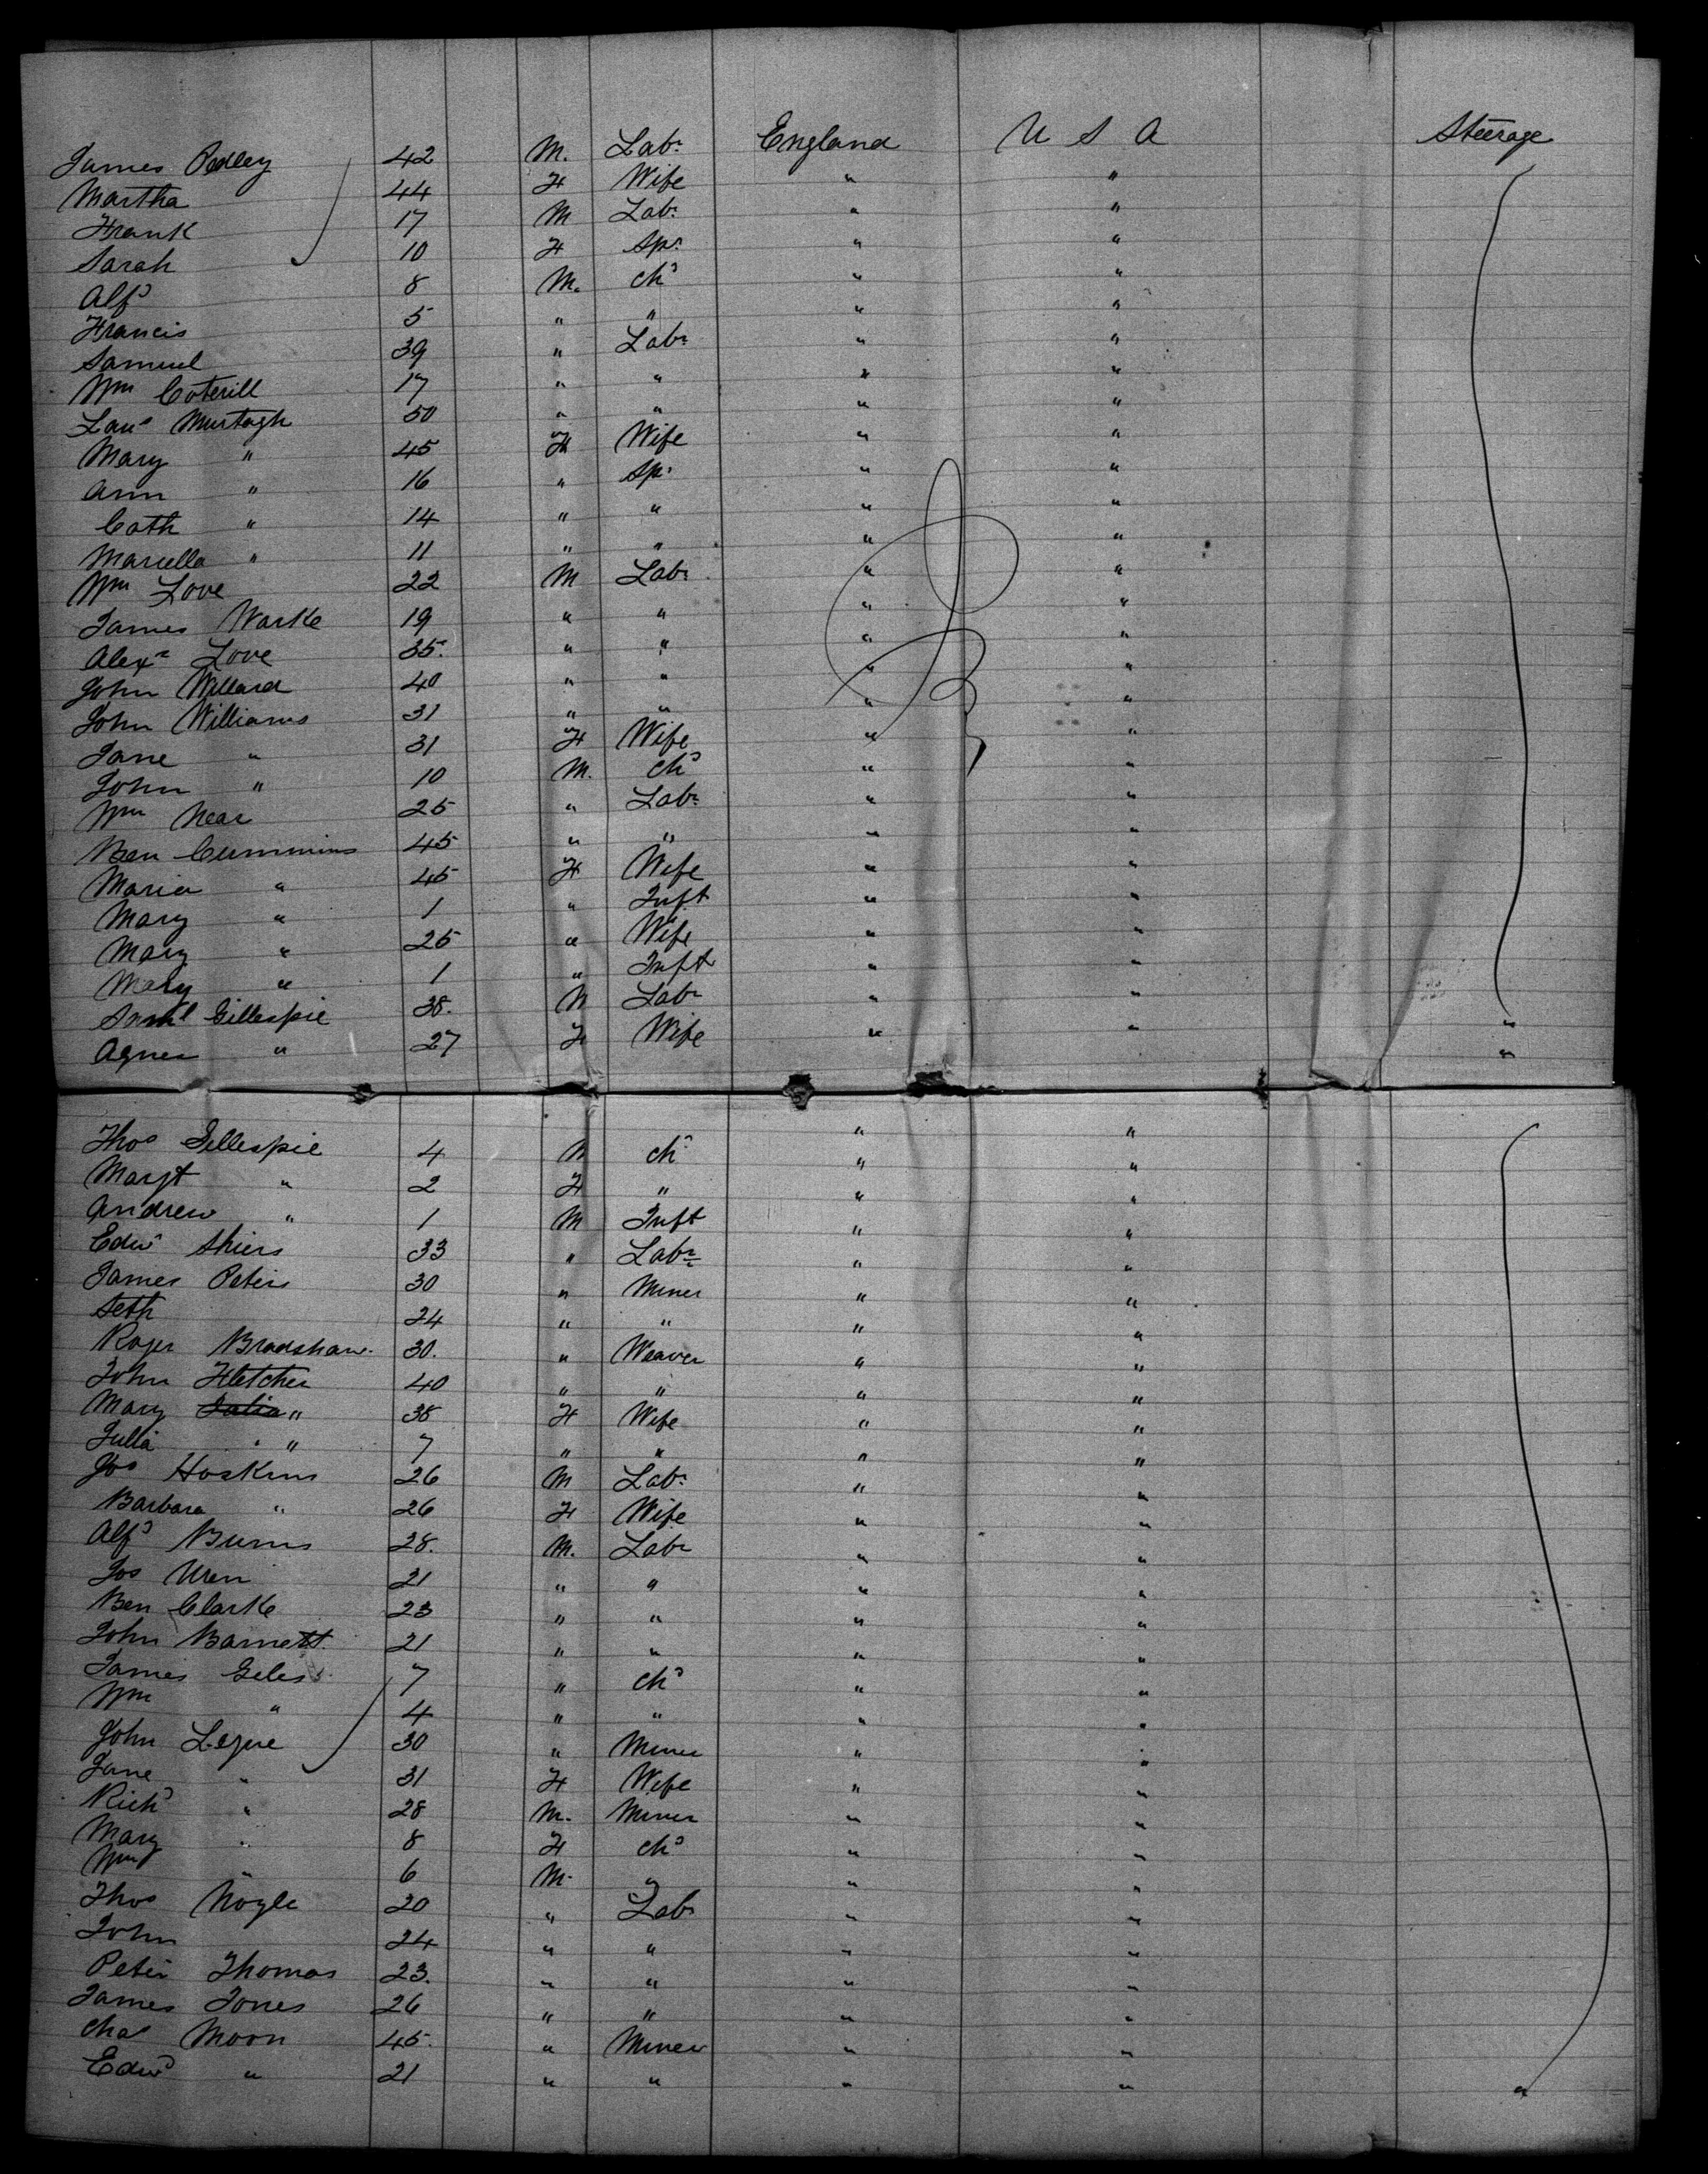 James Pedley 42 M. Labr England U S A Steerage
Martha 44 F Wife " "
Frank 17 M Labr " "
Sarah 10 F Spr " "
Alfd 8 M. chd " "
Francis 5 " " " "
Samuel 39 " Labr " "
Wm Coterill 17 " " " "
Laue Murtagh 50 " " " "
Mary " 45 F Wife " "
Ann " 16 " Spr " "
Cath " 14 " " " "
Marcella " 11 " " " "
Wm Love 22 M Labr " "
James Warke 19 " " " "
Alexr Love 35. " " " "
John Willard 40 " " " "
John Williams 31 " " " "
Jane " 31 F Wife " "
John " 10 M. chd " "
Wm Near 25 " Labr " "
Ben Cummins 45 " " " "
Maria " 45 F Wife " "
Mary " 1 " Inft " "
Mary " 25 " Wife " "
Mary " 1 " Inft " "
Saml Gillespie 38. M Labr " " "
Agnes " 27 F Wife " " "
Thos Gillespie 4 M ch " "
Margt " 2 F " " "
Andrew " 1 M Inft " "
Edwd Shiers 33 " Labr " "
James Peters 30 " Miner " "
Seth 24 " " " "
Roger Bradshaw. 30. " Weaver " "
John Fletcher 40 " " " "
Mary Julia " 38 F Wife " "
Julia " 7 " " " "
Jos Hoskins 26 M Labr " "
Barbara " 26 F Wife " "
Alfd Burns 28. M. Labr " "
Jos Uren 21 " " " "
Ben Clarke 23 " " " "
John Barnett 21 " " " "
James Giles 7 " chd " "
Wm " 4 " " " "
John Legue 30 " Miner " "
Jane " 31 F Wife " "
Richd " 28 M. Miner " "
Mary " 8 F chd " "
Wm " 6 M. " " "
Thos Noyle 20 " Labr " "
John 24 " " " "
Peter Thomas 23. " " " "
James Jones 26 " " " "
Chas Moon 45. " Miner " "
Edwd " 21 " " " " "